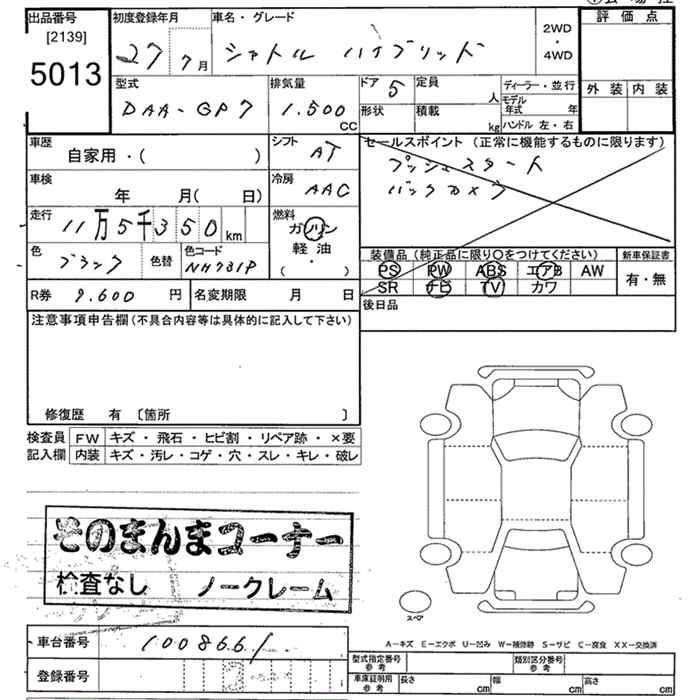 出品番号 初度登録年月 車名・グレード 評価点
[2139]
5013
27 7月 シャトル ハイブリッド 2WD・4WD
外装 内装
型式 排気量 ドア 5 定員 人 ディーラー・並行
DAA-GP7 1.500 CC 形状 積載 kg モデル年式 年
ハンドル 左・右
車歴 シフト セールスポイント (正常に機能するものに限ります)
自家用・( ) AT プッシュスタート
車検 冷房 バックカメラ
年 月( 日) AAC
走行 燃料
11万5千350km ガソリン
軽・油
( ・ )
色 色替 色コード 装備品 (純正品に限り○をつけてください) 新車保証書
ブラック NH731P PS PW ABS エアB AW 有・無
SR ナビ TV カワ
R券 9.600円 名変期限 月 日 後日品
注意事項申告欄 (不具合内容等は具体的に記入して下さい)
修復歴 有 〔箇所 〕
検査員 FW キズ・飛石・ヒビ割・リペア跡・×要
記入欄 内装 キズ・汚レ・コゲ・穴・スレ・キレ・破レ
そのまんまコーナー
検査なし ノークレーム
スペア
A－キズ E－エクボ U－凹み W－補修跡 S－サビ C－腐食 XX－交換済
車台番号 1008661
登録番号
型式指定番号 参考 類別区分番号 参考
車庫証明用 参考 長さ cm 幅 cm 高さ cm